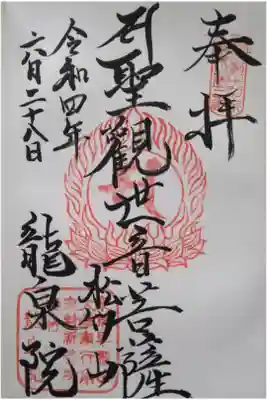 奉拝
聖觀世音菩薩
松竹山
龍泉院
令和四年
六月二十八日